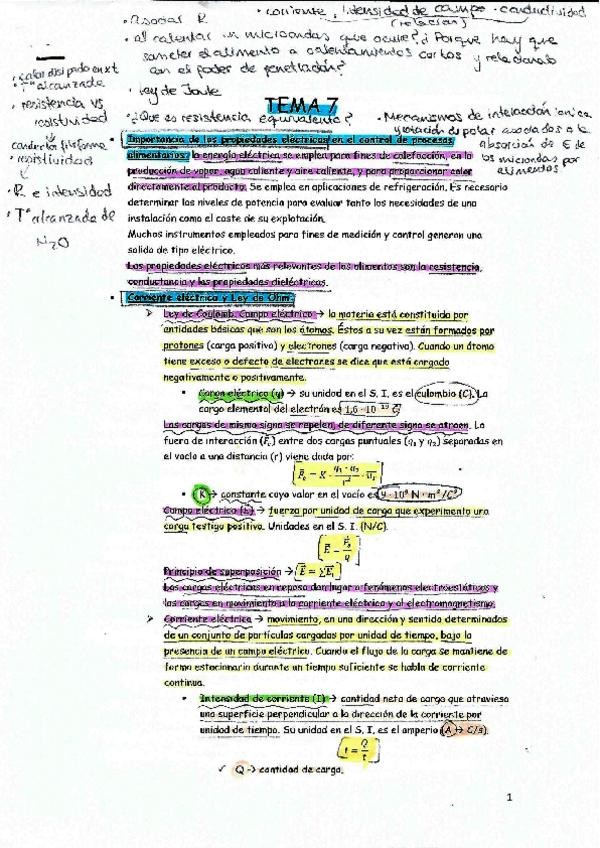 • Asociar R.
• corriente, Intensidad de campo - conductividad
(relación)
• al calentar en microondas que ocurre? ¿Porque hay que
someter el alimento a calentamientos cortos y relacionarlo
con el poder de penetración?
• calor disipado en xt
• Tª alcanzada
• resistencia vs
resistividad
• Ley de Joule
TEMA 7
• ¿Que es resistencia equivalente?
• Mecanismos de interacción iónica
y rotación dipolar asociados a la
absorción de E de
los microondas por
alimentos
conductor filiforme
• resistividad
• R e intensidad
• Tª alcanzada de
N2O
• Importancia de las propiedades eléctricas en el control de procesos
alimentarios: la energía eléctrica se emplea para fines de calefacción, en la
producción de vapor, agua caliente y aire caliente, y para proporcionar calor
directamente al producto. Se emplea en aplicaciones de refrigeración. Es necesario
determinar los niveles de potencia para evaluar tanto las necesidades de una
instalación como el coste de su explotación.
Muchos instrumentos empleados para fines de medición y control generan una
salida de tipo eléctrico.
Las propiedades eléctricas más relevantes de los alimentos son la resistencia,
conductancia y las propiedades dieléctricas.
• Corriente eléctrica y Ley de Ohm
➢ Ley de Coulomb. Campo eléctrico → la materia está constituida por
entidades básicas que son los átomos. Éstos a su vez están formados por
protones (carga positiva) y electrones (carga negativa). Cuando un átomo
tiene exceso o defecto de electrones se dice que está cargado
negativamente o positivamente.
• Carga eléctrica (q) → su unidad en el S. I. es el culombio (C). La
carga elemental del electrón es 1,6 · 10⁻¹⁹ C
Las cargas de mismo signo se repelen, de diferente signo se atraen. La
fuerza de interacción (F̅e) entre dos cargas puntuales (q₁ y q₂) separadas en
el vacío a una distancia (r) viene dada por:
F̅e = K · q₁ · q₂ / r² · u̅r
• K → constante cuyo valor en el vacío es 9 · 10⁹ N · m²/C²
Campo eléctrico (E) → fuerza por unidad de carga que experimenta una
carga testigo positiva. Unidades en el S. I. (N/C).
E̅ = F̅e / q
Principio de superposición → E̅ = ΣE̅i
Las cargas eléctricas en reposo dan lugar a fenómenos electroestáticos y
las cargas en movimiento a la corriente eléctrica y al electromagnetismo.
➢ Corriente eléctrica → movimiento, en una dirección y sentido determinados
de un conjunto de partículas cargadas por unidad de tiempo, bajo la
presencia de un campo eléctrico. Cuando el flujo de la carga se mantiene de
forma estacionaria durante un tiempo suficiente se habla de corriente
continua.
• Intensidad de corriente (I) → cantidad neta de carga que atraviesa
una superficie perpendicular a la dirección de la corriente por
unidad de tiempo. Su unidad en el S. I. es el amperio (A → C/s).
I = Q / t
✓ Q → cantidad de carga.
1